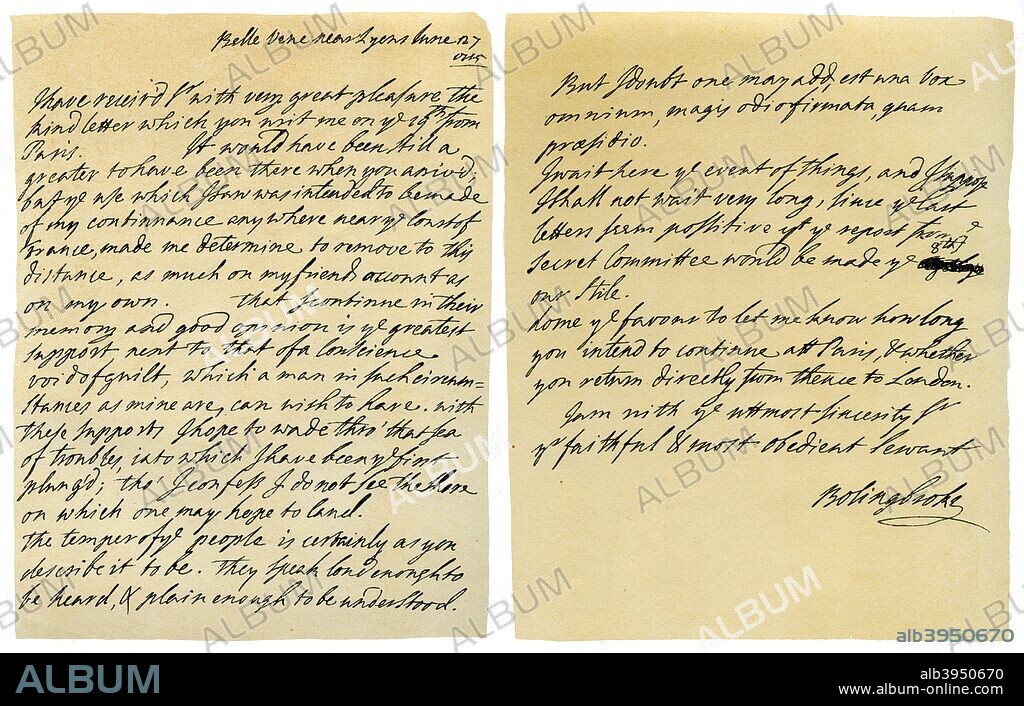 Belle Vene near Lyons June 127
I have receiv'd Sr with very great pleasure, the
kind letter which you writ me on ye 19th from
Paris. It would have been still a
greater to have been there when you arriv'd;
but ye use which I saw was intended to be made
of my continuance any where near ye Coast of
France, made me determine to remove to this
distance, as much on my friends account as
on my own. that I continue in their
memory and good opinion is ye greatest
support next to that of a Conscience
void of guilt, which a man in such circum=
stances as mine are, can wish to have. with
these supports I hope to wade thro' that sea
of troubles, into which I have been ye first
plung'd; tho I confess I do not see the shore
on which one may hope to land.
the temper of ye people is certainly as you
describe it to be. They speak loud enough to
be heard, & plain enough to be understood.
But I doubt one may add, est una vox
omnium, magis odio firmata, quam
præsidio.
I wait here ye event of things, and I suppose
I shall not wait very long, since ye last
letters seem possitive yt ye report from ye
secret Committee would be made ye 8th
our stile.
ye favour to let me know how long
you intend to continue att Paris, & whether
you return directly from thence to London.
I am with ye uttmost sincerity Sr
yr faithful & most obedient servant
Bolingbroke
ALBUM
alb3950670
ALBUM
alb3950670
www.album-online.com